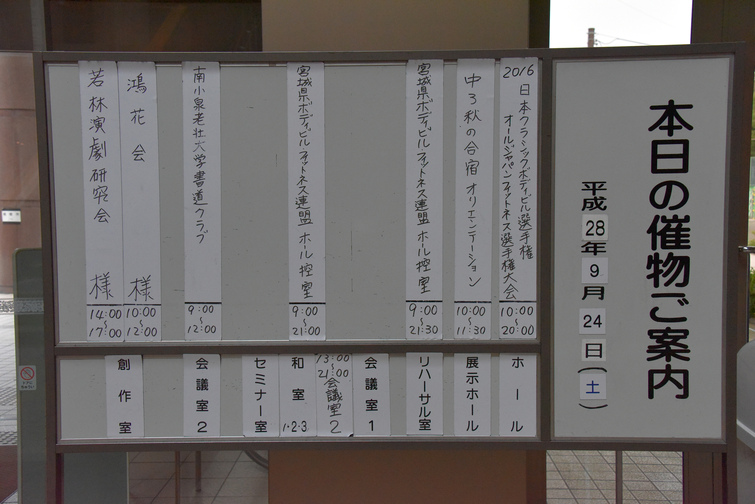 本日の催物ご案内
平成28年9月24日(土)
2016 日本クラシックボディビル選手権
オールジャパンフィットネス選手権大会
10:00
〜
20:00
ホール
中3秋の合宿 オリエンテーション
10:00
〜
11:30
展示ホール
宮城県ボディビルフィットネス連盟 ホール控室
9:00
〜
21:30
リハーサル室
会議室1
宮城県ボディビルフィットネス連盟 ホール控室
9:00
〜
21:00
13:00
〜
21:00
会議室2
和室
1・2・3
セミナー室
南小泉老壮大学書道クラブ
9:00
〜
12:00
会議室2
鴻花会 様
10:00
〜
12:00
若林演劇研究会 様
14:00
〜
17:00
創作室